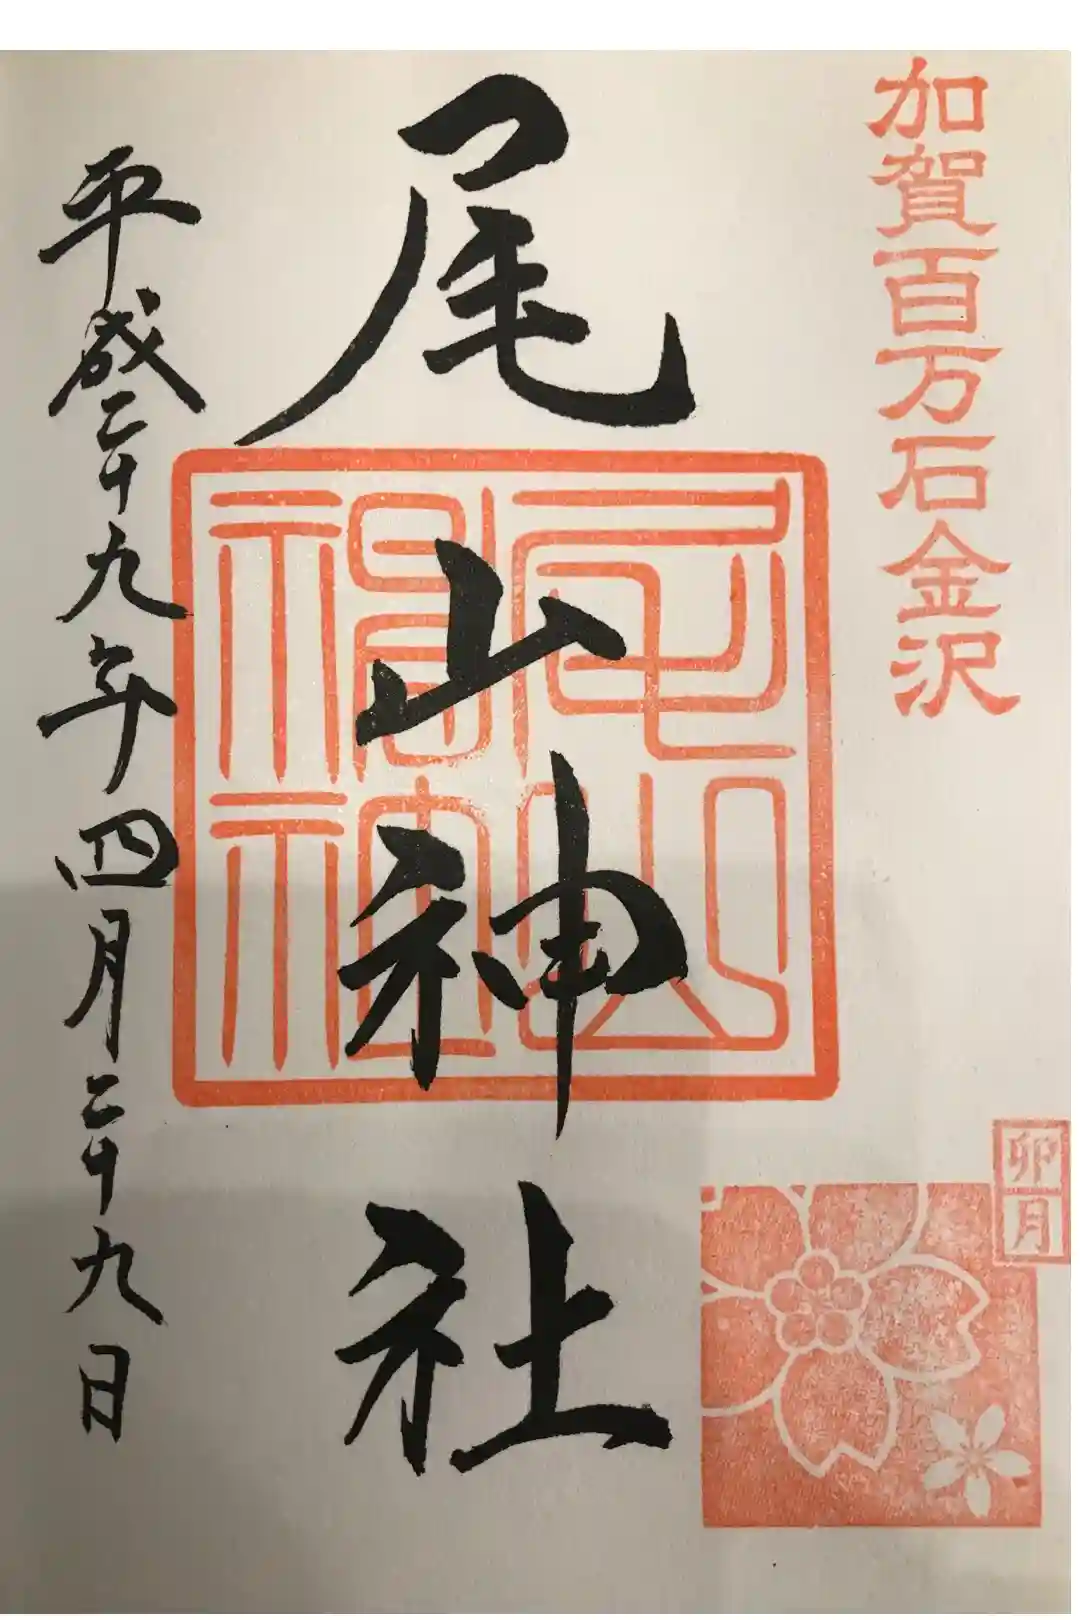 加賀百万石金沢
卯月
尾山神社
尾山神社
平成二十九年四月二十九日